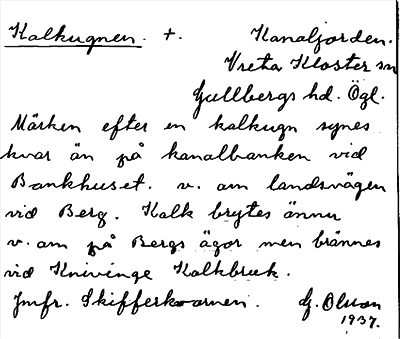 Kalkugnen. +. Kanaljorden.
Vreta Kloster sn
Gullbergs hd. Ögl.
Märken efter en kalkugn synes
kvar än på kanalbanken vid
Bankhuset. v. om landsvägen
vid Berg. Kalk brytes ännu
v. om på Bergs ägor men brännes
vid Knivinge Kalkbruk.
Jmfr. Skifferkvarnen. G. Olson
1937.